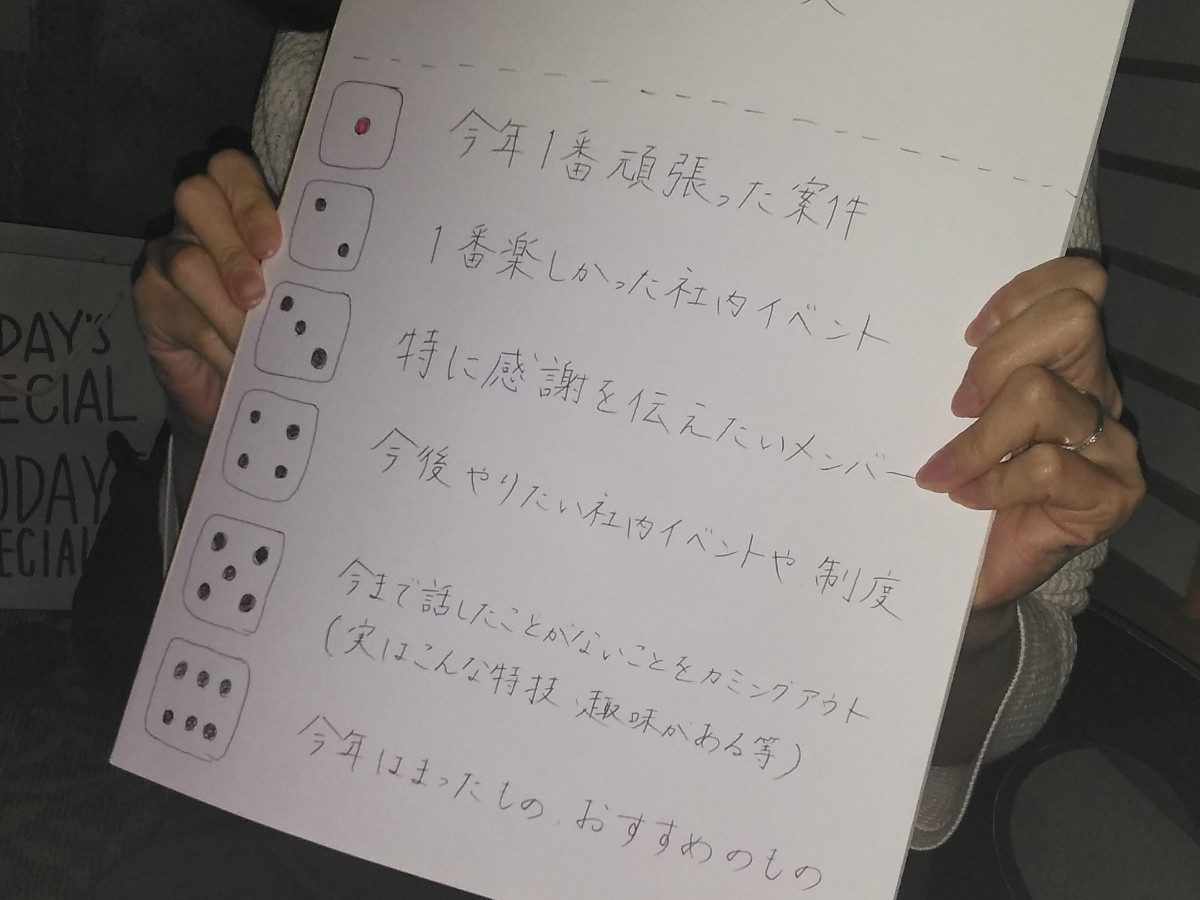 今年1番頑張った案件
1番楽しかった社内イベント
特に感謝を伝えたいメンバー
今後やりたい社内イベントや制度
今まで話したことがないことをカミングアウト
(実はこんな特技、趣味がある等)
今年はまったもの、おすすめのもの
DAY'S
ECIAL
ODAY
ECIAL